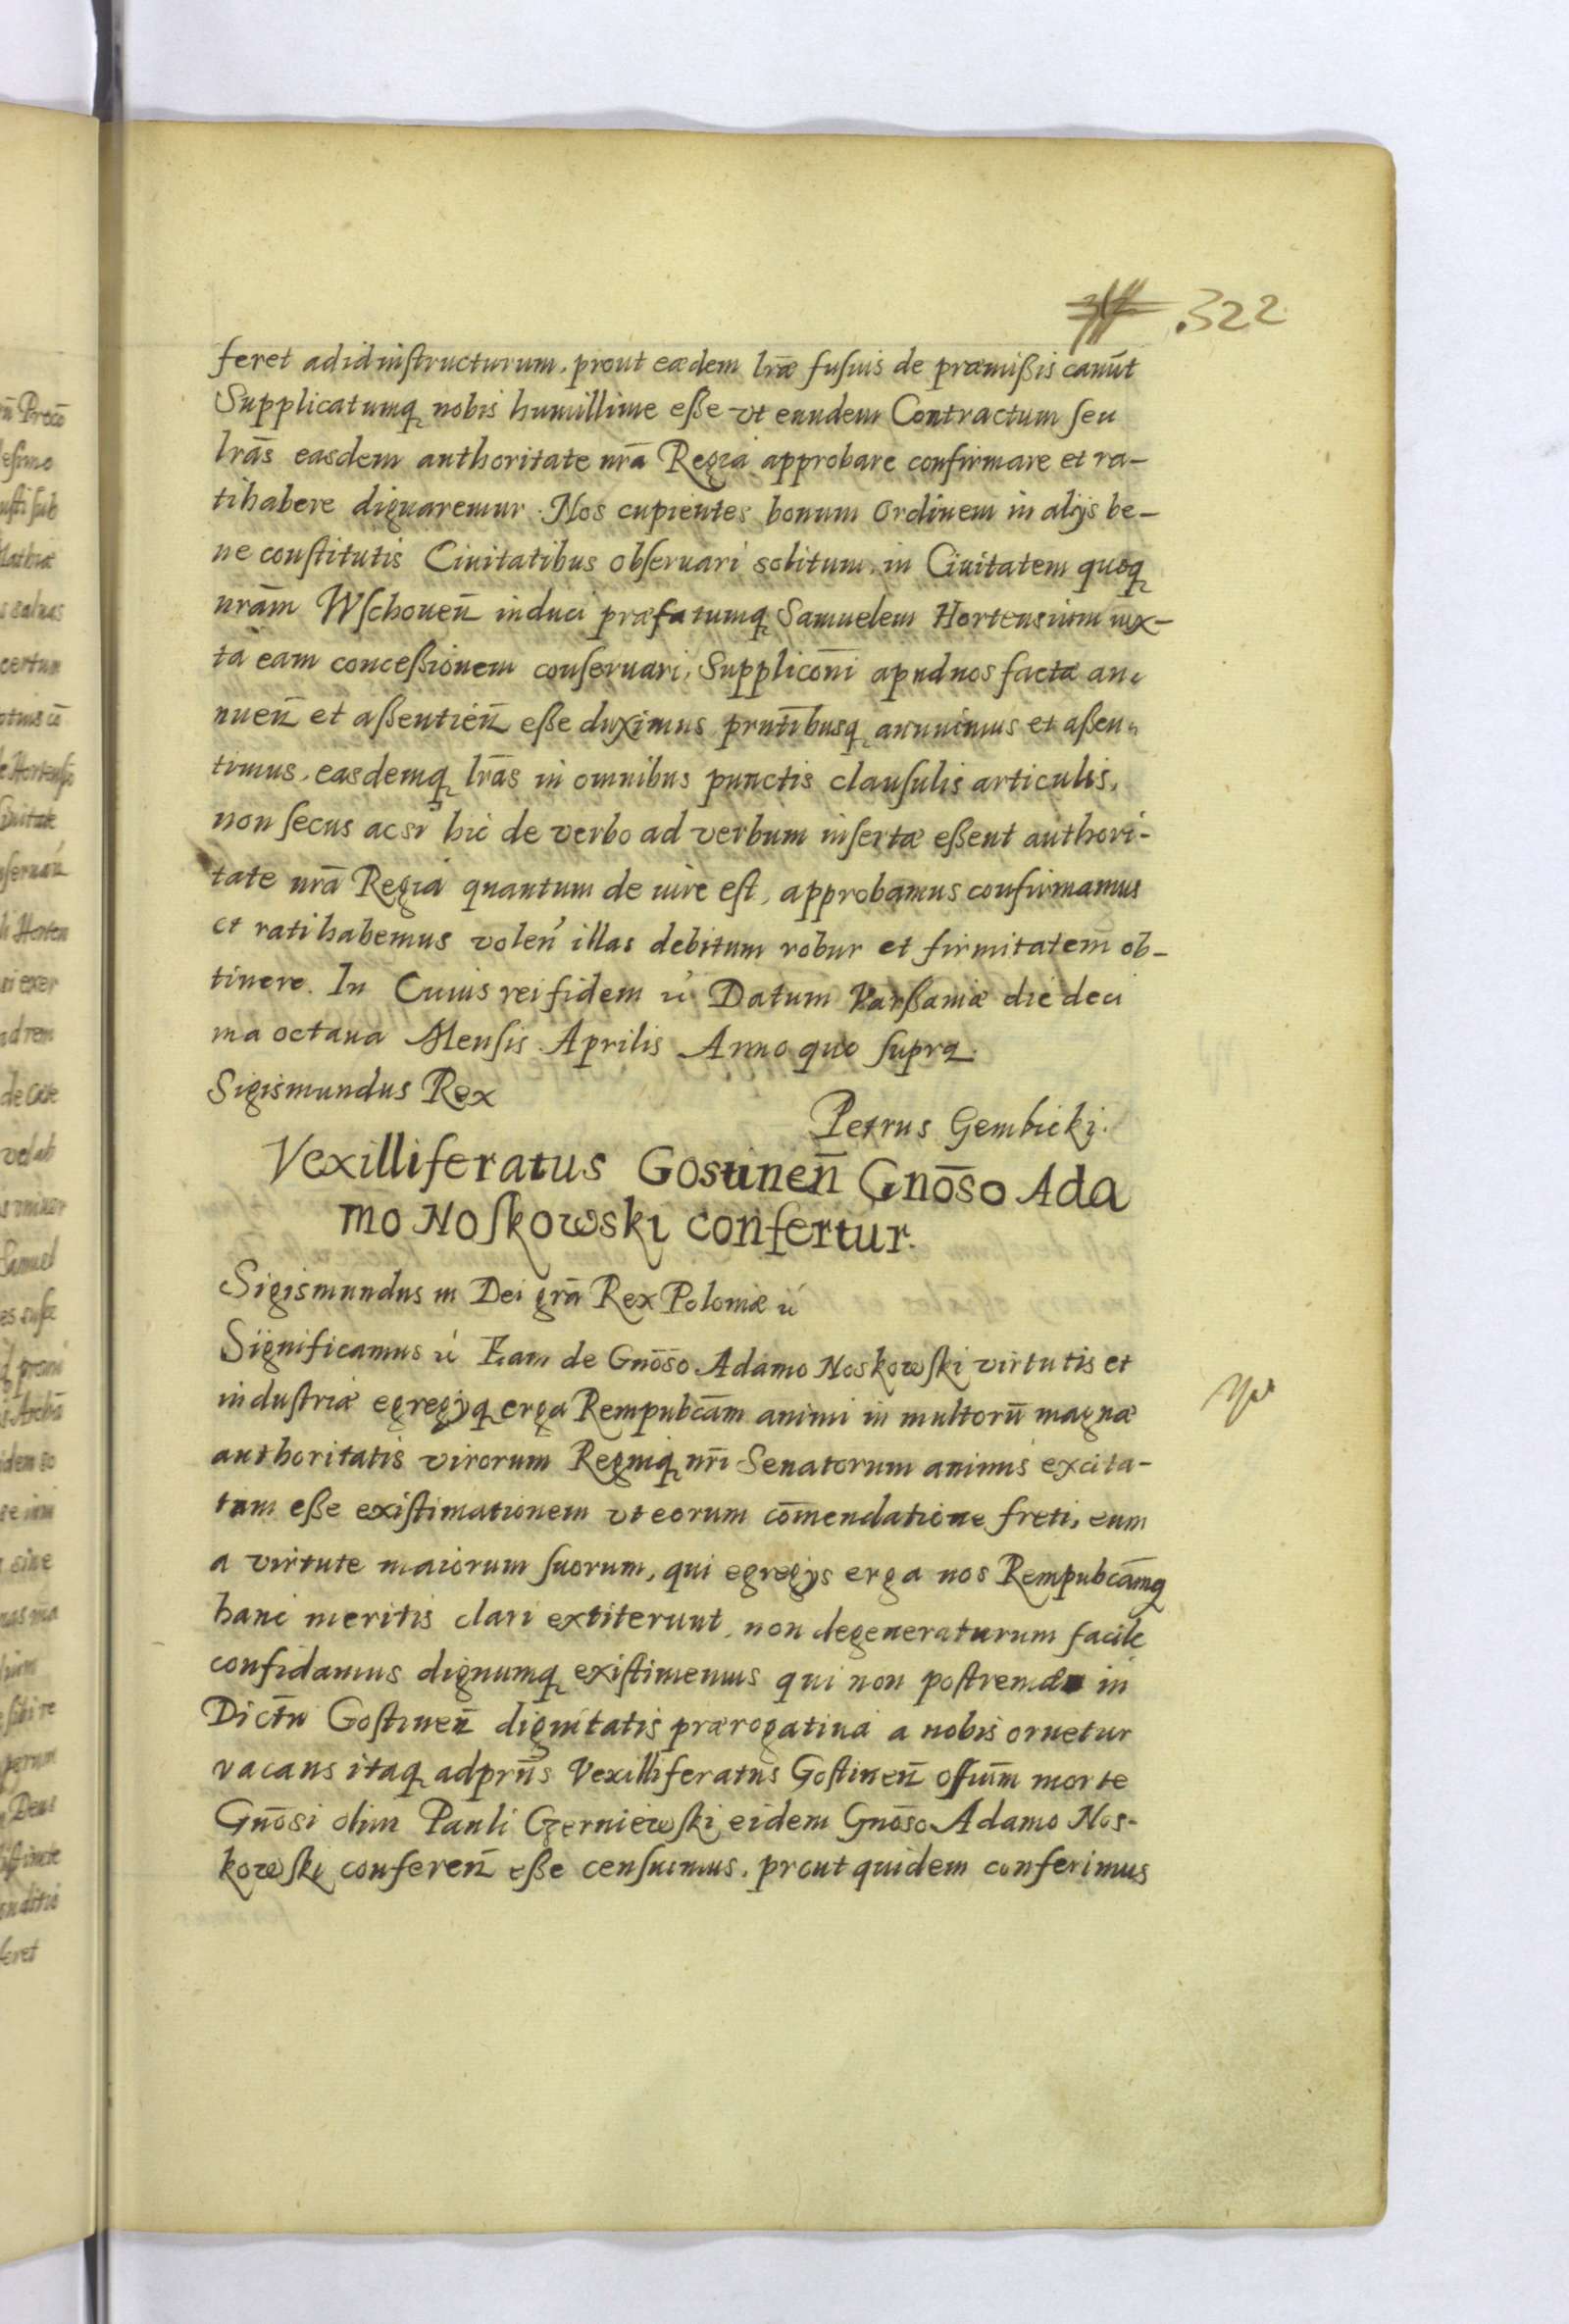 322
feret ad id instructurum, prout eædem lr̄æ fusius de præmißis canūt
Supplicatumq nobis humillime eße vt eundem Contractum seu
lrās easdem authoritate nrā Regia approbare confirmare et ra-
tihabere dignaremur. Nos cupientes bonum Ordinem in alijs be-
ne constitutis Ciuitatibus obseruari solitum, in Ciuitatem quoq
nrām Wschouen̄ induci præfatumq Samuelem Hortensium iux-
ta eam conceßionem conseruari, Supplicōni apud nos factæ an-
nuen̄ et aßentien̄ eße duximus, prn̄tibusq annuimus et aßen-
timus, easdemq lrās in omnibus punctis clausulis articulis,
non secus ac si hic de verbo ad verbum insertæ eßent authori-
tate nrā Regia quantum de iure est, approbamus confirmamus
et ratihabemus volen̄ illas debitum robur et firmitatem ob-
tinere. In Cuius rei fidem ꝛć Datum Varßauiæ die deci
ma octaua Mensis Aprilis Anno quo supra.
Sigismundus Rex
Petrus Gembicki.
Vexilliferatus Gostinen̄ Gnōso Ada
mo Noskowski confertur.
Sigismundus III Dei grā Rex Poloniæ ꝛć
Significamus ꝛć Eam de Gnōso Adamo Noskowski virtutis et
industriæ egregijq erga Rempubcām animi in multorū magnæ
authoritatis virorum Regniq nr̄i Senatorum animis excita-
tam eße existimationem vt eorum cōmendatione freti, eum
a virtute maiorum suorum, qui egregijs erga nos Rempubcāmq
hanc meritis clari extiterunt, non degeneraturum facile
confidamus dignumq existimemus qui non postrema in
Dictu Gostinen̄ dignitatis prærogatiua a nobis ornetur
vacans itaq ad prn̄s Vexilliferatus Gostinen̄ offiūm morte
Gnōsi olim Pauli Czerniewski eidem Gnōso Adamo Nos-
kowski conferen̄ eße censuimus, prout quidem conferimus